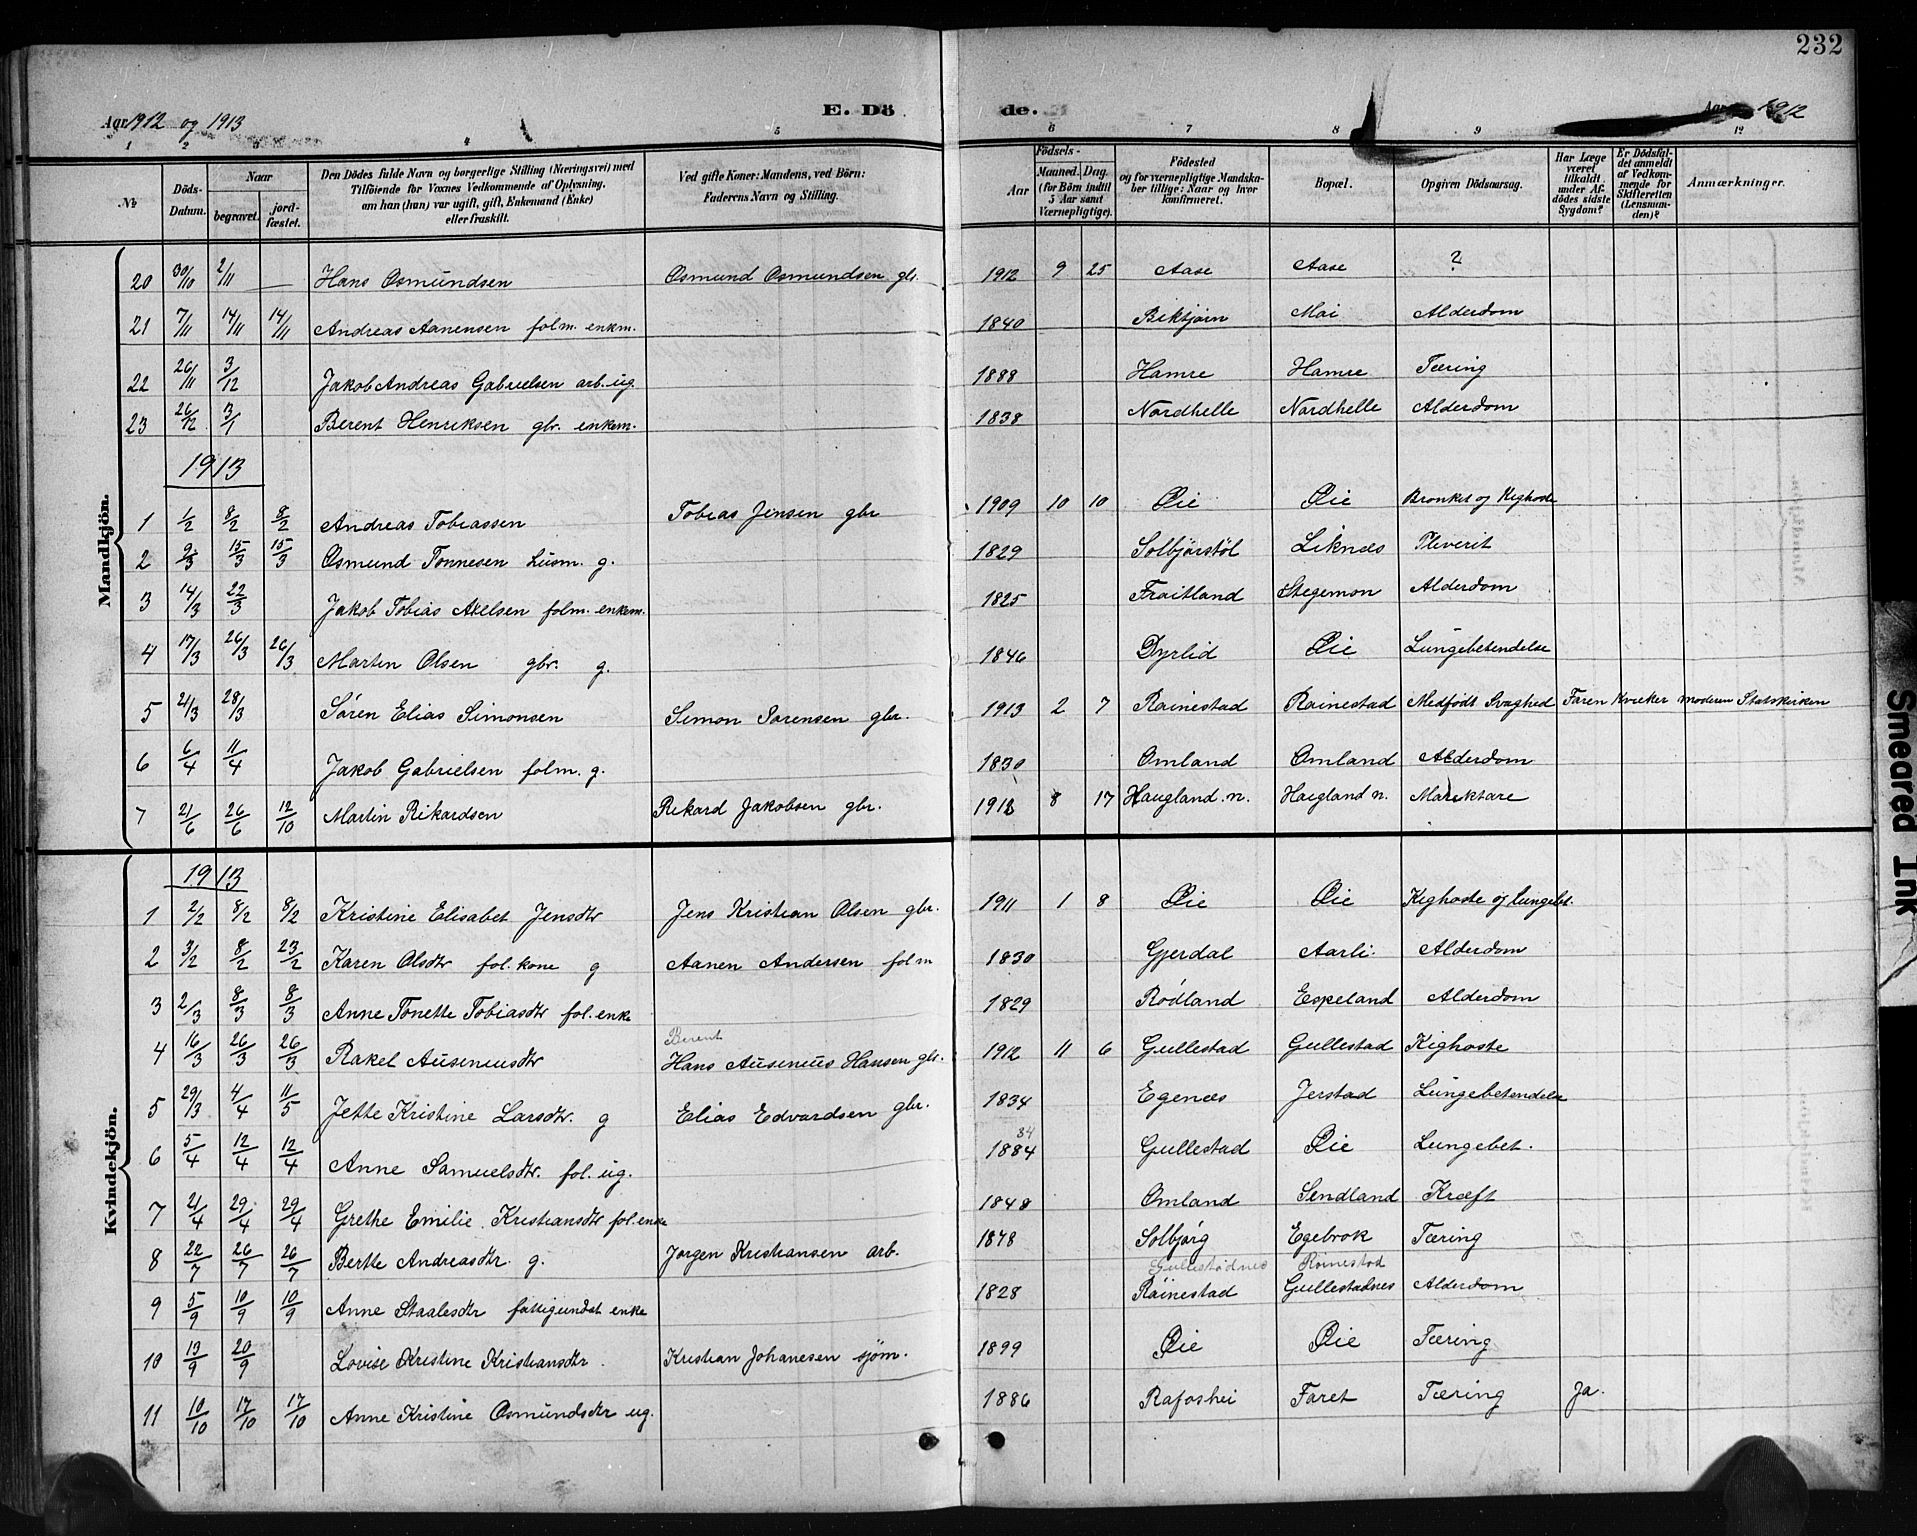 232
Aar 1912 og 1913 E. Dö de. Aar 1912
1 2 3 4 5 6 7 8 9 12
№ Döds-Datum. Naar begravet. jord-fæstet. Den Dödes fulde Navn og borgerlige Stilling (Næringsvei) med Tilföiende for Voxnes Vedkommende af Oplysning, om han (hun) var ugift, gift, Enkemand (Enke) eller fraskilt. Ved gifte Koner: Mandens, ved Börn: Faderens Navn og Stilling. Aar Födsels- Maaned. Dag. (for Börn indtil 5 Aar samt Værnepligtige). Födested og for værnepligtige Mandskaber tillige: Naar og hvor konfirmeret. Bopæl. Opgiven Dödsaarsag. Har Læge været tilkaldt under Afdödes sidste Sygdom? Er Dödsfaldet anmeldt af Vedkommende for Skifteretten (Lensmanden)? Anmærkninger.
Mandkjön.
20 30/10 2/11 — Hans Osmundsen Osmund Osmundsen gbr. 1912 9 25 Aase Aase ?
21 7/11 14/11 14/11 Andreas Aanensen folm. enkm. 1840 Birkjørn Mai Alderdom
22 26/11 3/12 Jakob Andreas Gabrielsen arb. ug. 1888 Hamre Hamre Tæring
23 26/12 3/1 Berent Henriksen gbr. enkem. 1838 Nordhelle Nordhelle Alderdom
1913
1 1/2 8/2 8/2 Andreas Tobiassen Tobias Jensen gbr 1909 10 10 Øie Øie Bronkit og Kighoste
2 9/3 15/3 15/3 Osmund Tønnesen Husm. g. 1829 Solbjørstøl Liknæs Pleverit
3 14/3 22/3 Jakob Tobias Axelsen folm. enkem. 1825 Frøitland Stegemon Alderdom
4 17/3 26/3 26/3 Martin Olsen gbr. g. 1846 Dyrlid Øie Lungebetendelse
5 21/3 28/3 Søren Elias Simonsen Simon Sørensen gbr. 1913 2 7 Røinestad Røinestad Medfødt Svaghed Faren Kvæker moderen Statskirken
6 6/4 11/4 Jakob Gabrielsen folm. g. 1830 Omland Omland Alderdom
7 21/6 26/6 12/10 Martin Rikardsen Rikard Jakobsen gbr. 1912 8 17 Haugland n. Haugland n. Mavektare
Kvindekjön.
1913
1 2/2 8/2 8/2 Kristine Elisabet Jensdtr Jens Kristian Olsen gbr. 1911 1 8 Øie Øie Kighoste og Lungebet.
2 3/2 8/2 23/2 Karen Olsdtr fol. kone g Aanen Andersen folm 1830 Gjerdal Aarli Alderdom
3 2/3 8/3 8/3 Anne Tonette Tobiasdtr fol. enke 1829 Rødland Espeland Alderdom
Berent
4 16/3 26/3 26/3 Rakel Auseniusdtr Hans Ausenius Hansen gbr. 1912 11 6 Gullestad Gullestad Kighoste
5 29/3 4/4 11/5 Jette Kristine Larsdtr. g Elias Edvardsen gbr. 1834 Egenæs Jerstad Lungebetendelse
34
6 5/4 12/4 12/4 Anne Samuelsdtr. fol. ug. 1884 Gullestad Øie Lungebet.
7 21/4 29/4 29/4 Grethe Emilie Kristiansdtr fol. enke 1848 Omland Sendland Kræft
8 22/7 26/7 26/7 Berte Andreasdtr. g. Jørgen Kristiansen arb. 1878 Solbjørg Egebrok Tæring
Gullestadnes Røinestad
9 5/9 10/9 10/9 Anne Staalesdtr fattigundst. enke 1828 Røinestad Gullestadnes Alderdom
10 13/9 20/9 Lovise Kristine Kristiansdtr. Kristian Johanesen sjøm. 1899 Øie Øie Tæring
11 10/10 17/10 17/10 Anne Kristine Osmundsdtr ug. 1886 Rafoshei Faret Tæring Ja.
Smeared Ink